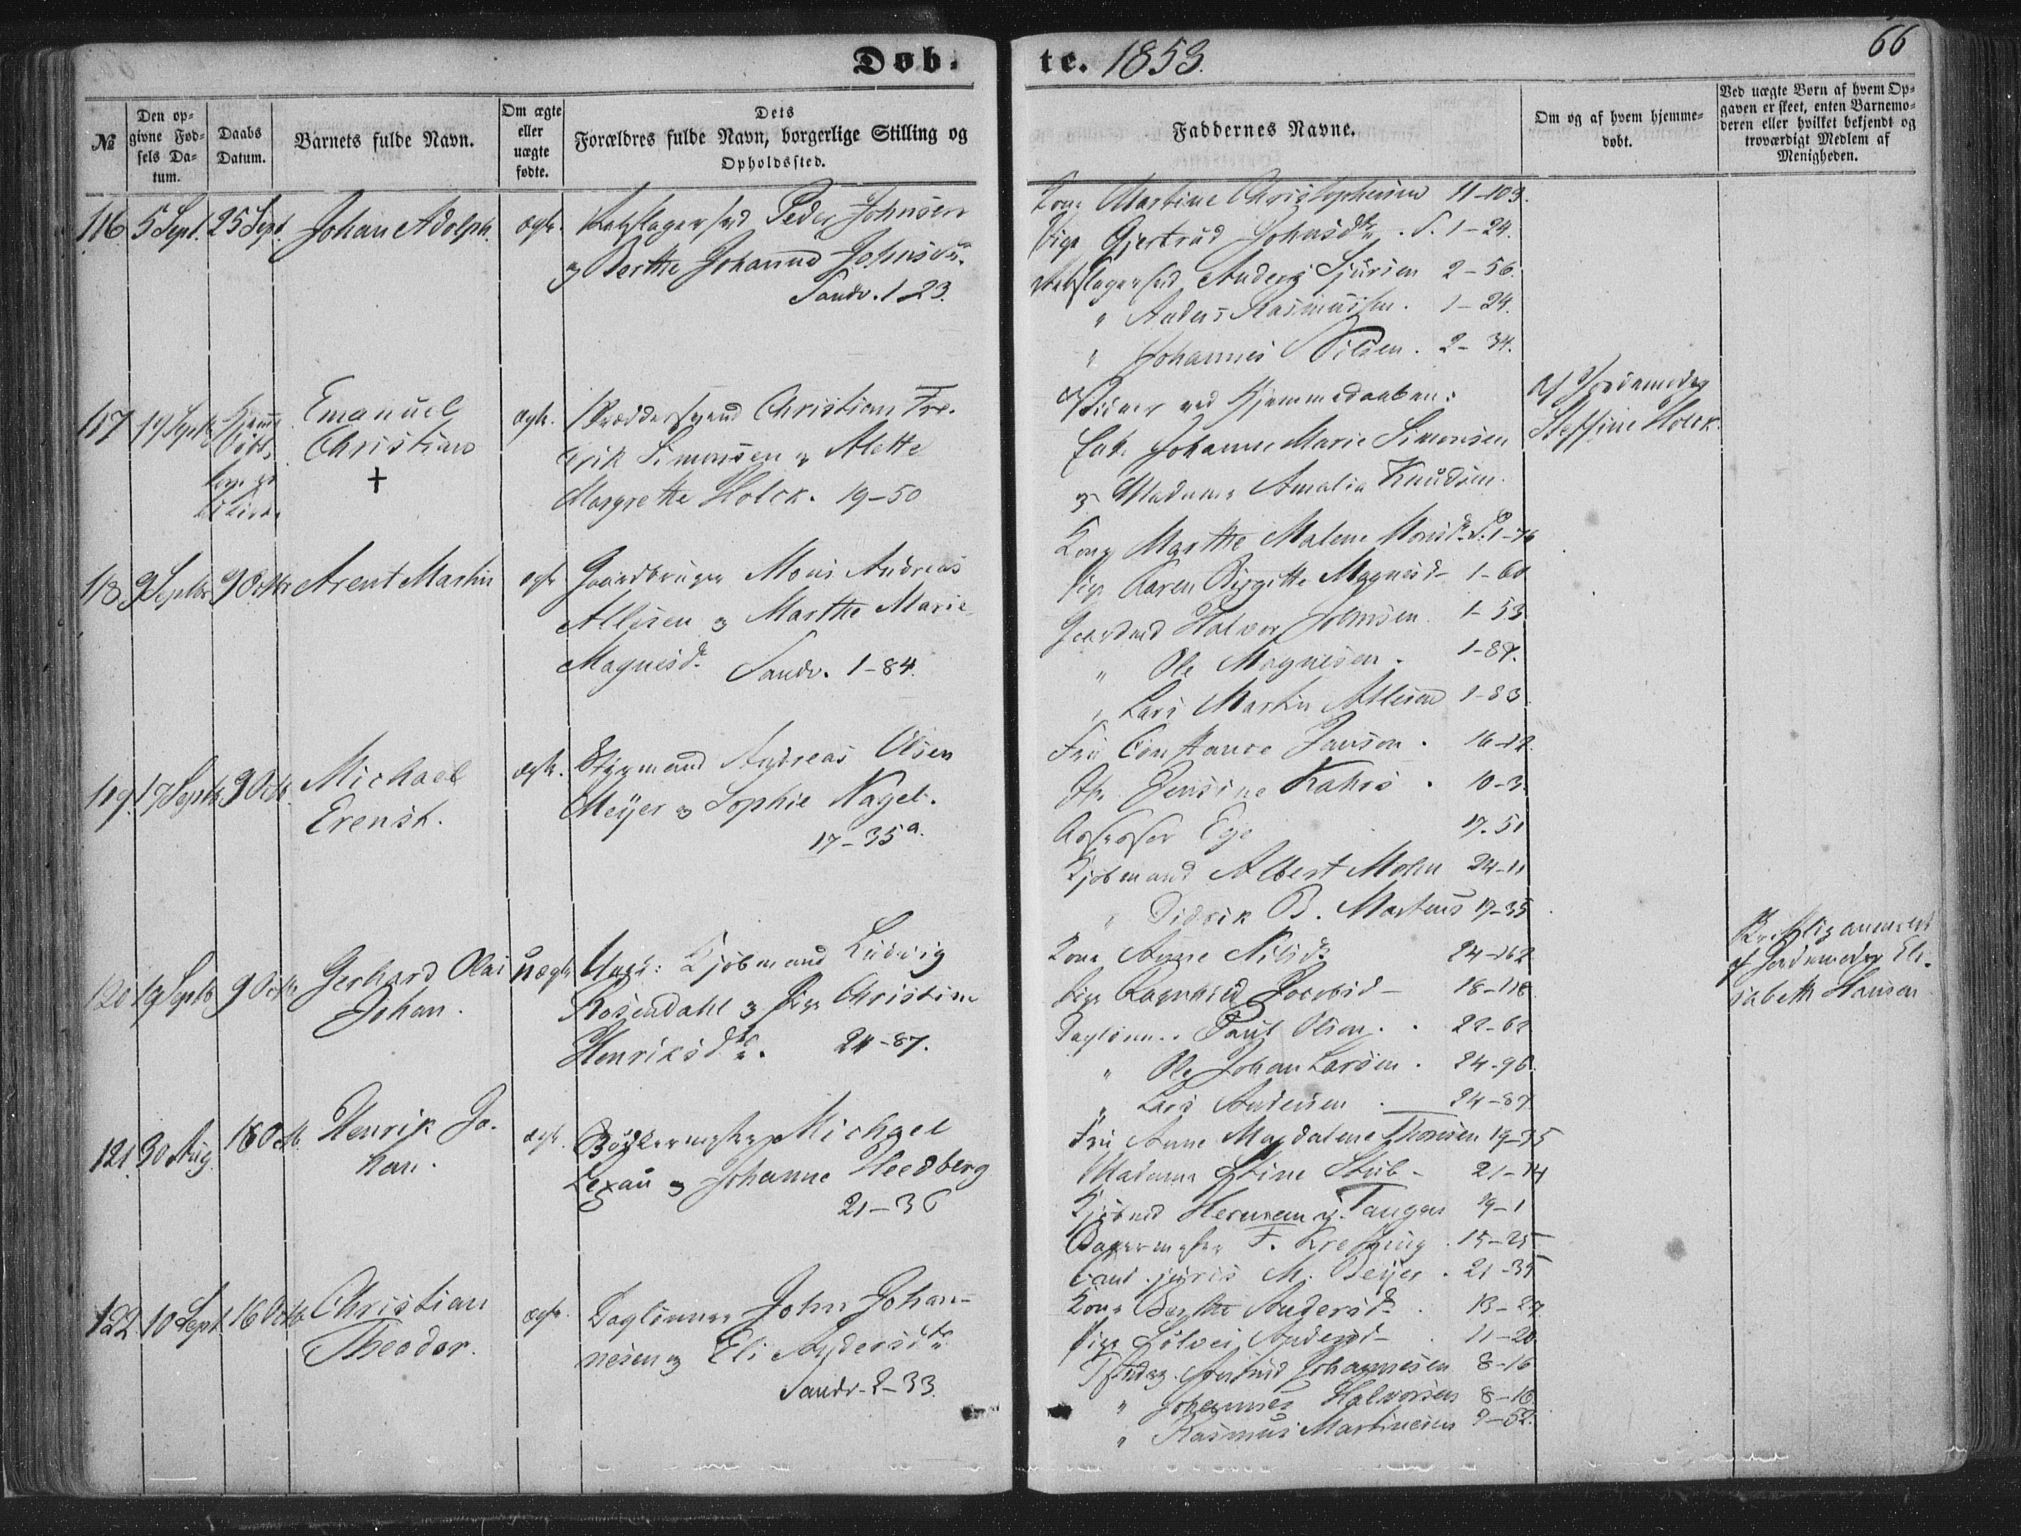 Døb. te. 1853. 66
№
Den opgivne Fødsels Datum.
Daabs Datum.
Barnets fulde Navn.
Om ægte eller uægte fødte.
Dets Forældres fulde Navn, borgerlige Stilling og Opholdssted.
Faddernes Navne.
Om og af hvem hjemmedøbt.
Ved uægte Børn af hvem Opgaven er skeet, enten Barnemoderen eller hvilket bekjendt og troværdigt Medlem af Menigheden.
116 5 Sept. 25 Sept. Johan Adolph. ægte.
Peder Johnsen
og Berthe Johanne Johnsd.
Sandv. 1 23.
Kone Martine Christophersen 11-103.
Pige Gjertrud Johnsdtr. S. 1-24.
Anders Sjursen 2-56.
" Anders Rasmussen. 1-24.
" Johannes Nilsen. 2-34.
117 19 Septb. Hjemme døbt,
Emanuel
Christian
+
ægte. Skræddersvend Christian Fre-
drik Simonsen og Alette
Margrethe Holck. 19-50
ved Hjemmedaaben:
Johanne Marie Simonsen
og Madame Amalia Knudsen.
af Jordemoder
Steffine Holck.
118 9 Septbr 9 Octbr Arent Martin ægte Gaardbruger Mons Andreas
Atlesen og Marthe Marie
Magnesd. Sandv. 1-84.
Kone Marthe Malene Monsd. S. 1-76
Pige Karen Birgitte Magnesd- 1-60
Gaardmd Halvor Johnsen 1-53
" Ole Magnesen. 1-89.
" Lars Martin Atlesen 1-83
119. 17 Septb 9 Octb. Michael
Erenst.
ægte. Styrmand Andreas Olsen
Meyer og Sophie Nagel.
17-35a.
Fru Constance Janson. 16-12
Jfr. Jensine Kahrs. 10-3
Assessor Ege 17-51
Kjøbmand Albert Mohn 24-11
" Didrik B. Martens 17-35
120 19 Septb 9 Octb. Gerhard Olai
Johan.
uægte Ungk: Kjøbmand Ludvig
Rosendahl og Pige Christine
Henriksdtr. 24-87.
Kone Anne Nilsd. 24-162
Pige Ragnhild Jacobsd- 18-118
Daglønn. Paul Olsen. 22-62
" Ole Johan Larsen. 24-96
" Lars Andersen. 24-87
Skriftlig anmeldt
af Jordemoder Eli-
sabeth Hansen
121. 30 Aug. 16 Octb. Henrik Jo-
han.
ægte. Bødkermester Michael
Lexau og Johanne Heedberg
21-36
Fru Anne Magdalene Thomsen 19-35
Madame Stine Stub- 21-14
Kjøbmd Herman v. Tangen 19-1
Bagermester F. Kressing. 15-25
Cand. juris M. Beyer. 21-35
122 10 Sept. 16 Octb. Christian
Theodor.
ægte. Daglønner John Johan-
nesen og Eli Andersdtr.
Sandv. 2-33.
Kone Berthe Andersd. 13-27
Pige Sølvei Andersd- 11-20
Johannesen 8-16
" Johannes Halvorsen 8-16
" Rasmus Martinesen 9-52.